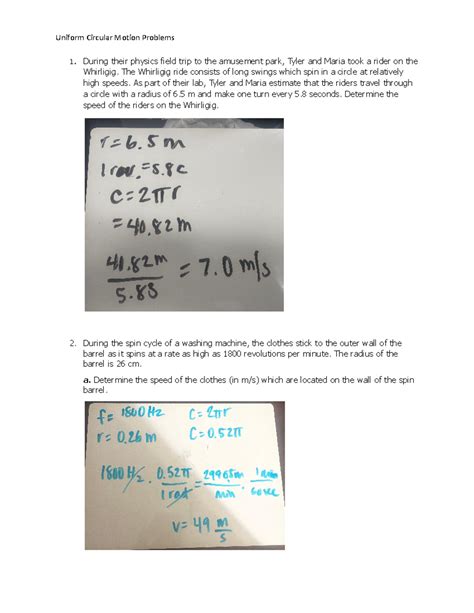 Uniform Circular Motion Problems
1. During their physics field trip to the amusement park, Tyler and Maria took a rider on the
Whirligig. The Whirligig ride consists of long swings which spin in a circle at relatively
high speeds. As part of their lab, Tyler and Maria estimate that the riders travel through
a circle with a radius of 6.5 m and make one turn every 5.8 seconds. Determine the
speed of the riders on the Whirligig.
r=6.5m
1 rev.=5.8
C=2πr
=40.82m
m
5.8s
= 7.0 m/s
2. During the spin cycle of a washing machine, the clothes stick to the outer wall of the
barrel as it spins at a rate as high as 1800 revolutions per minute. The radius of the
barrel is 26 cm.
a. Determine the speed of the clothes (in m/s) which are located on the wall of the spin
barrel.
f= 1800Hz C=2πr
r= 0.26 m C=0.52π
1800 Hz · 0.52π = m · 1 min
1 min
v= 49 m
s